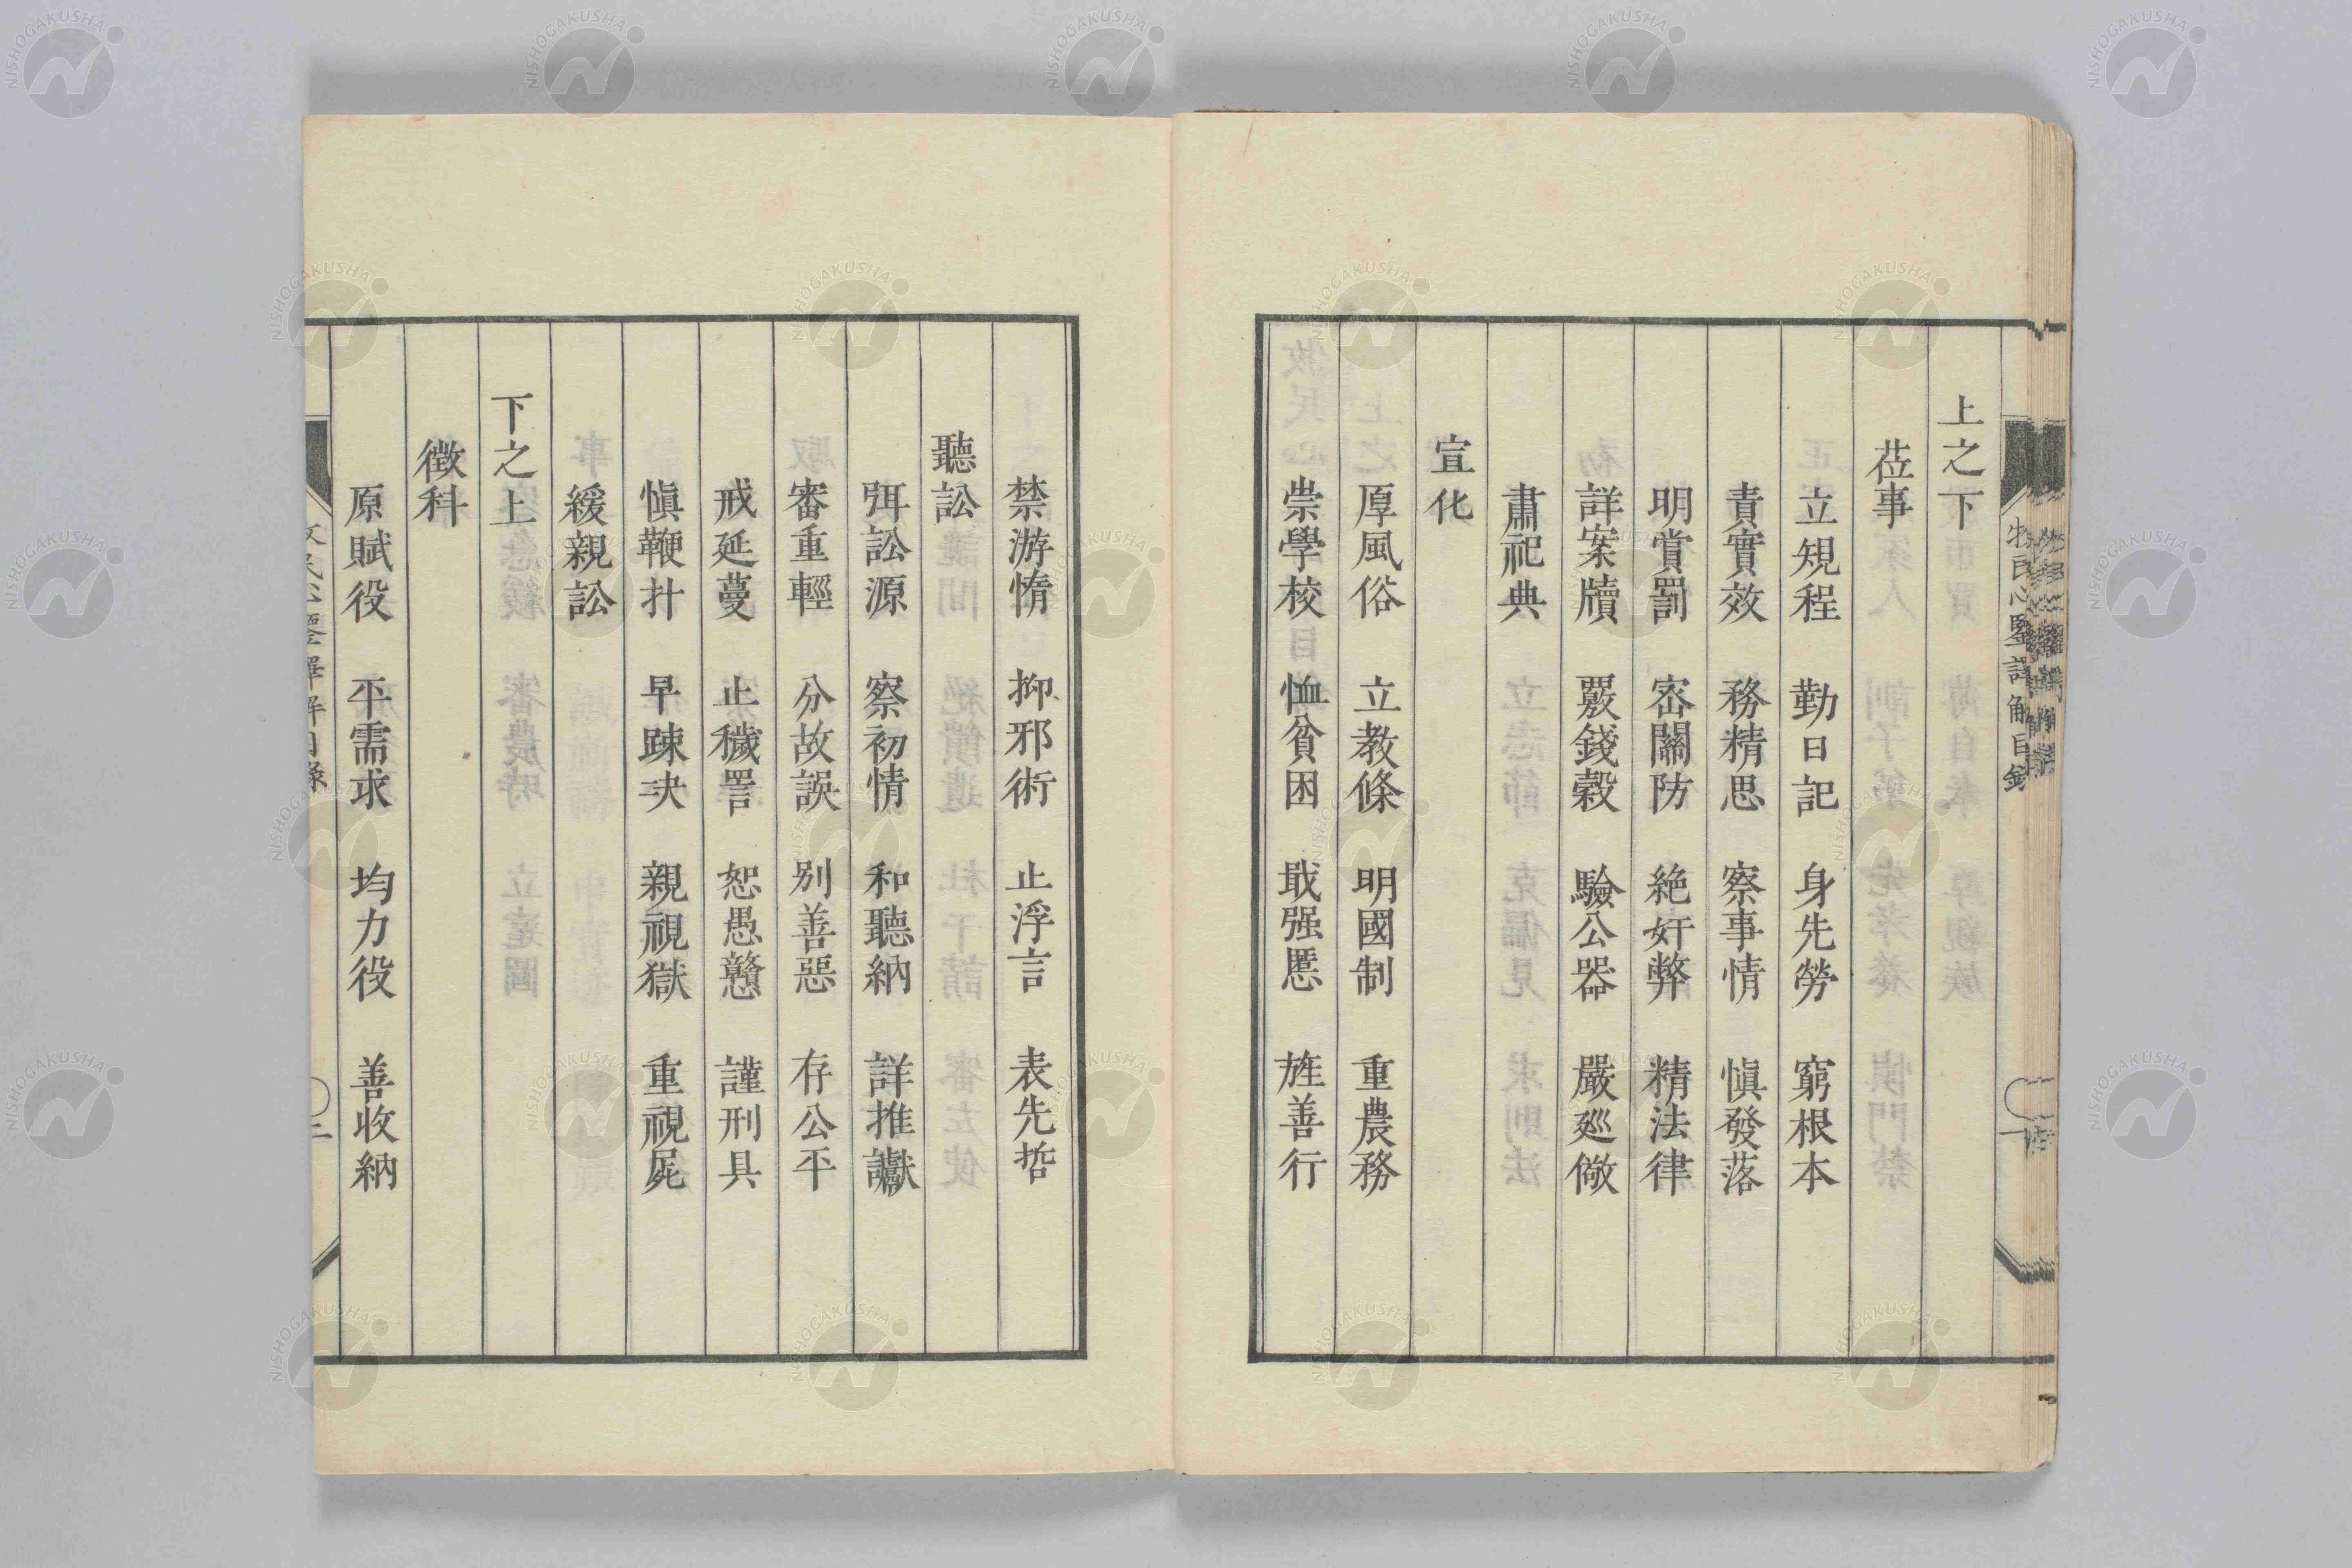 上之下
莅事
立規程 勤日記 身先勞 窮根本
責實效 務精思 察事情 愼發落
明賞罰 密關防 絶奸弊 精法律
詳案牘 覈錢穀 驗公器 嚴廵儆
肅祀典
宣化
厚風俗 立教條 明國制 重農務
崇學校 恤貧困 戢强慝 旌善行
禁游惰 抑邪術 止浮言 表先哲
聽訟
弭訟源 察初情 和聽納 詳推讞
審重輕 分故誤 别善惡 存公平
戒延蔓 止穢詈 恕愚戇 謹刑具
愼鞭扑 早踈决 親視獄 重視屍
緩親訟
下之上
徴科
原賦役 平需求 均力役 善收納
牧民心鑒譯解目錄
NISHOGAKUSHA